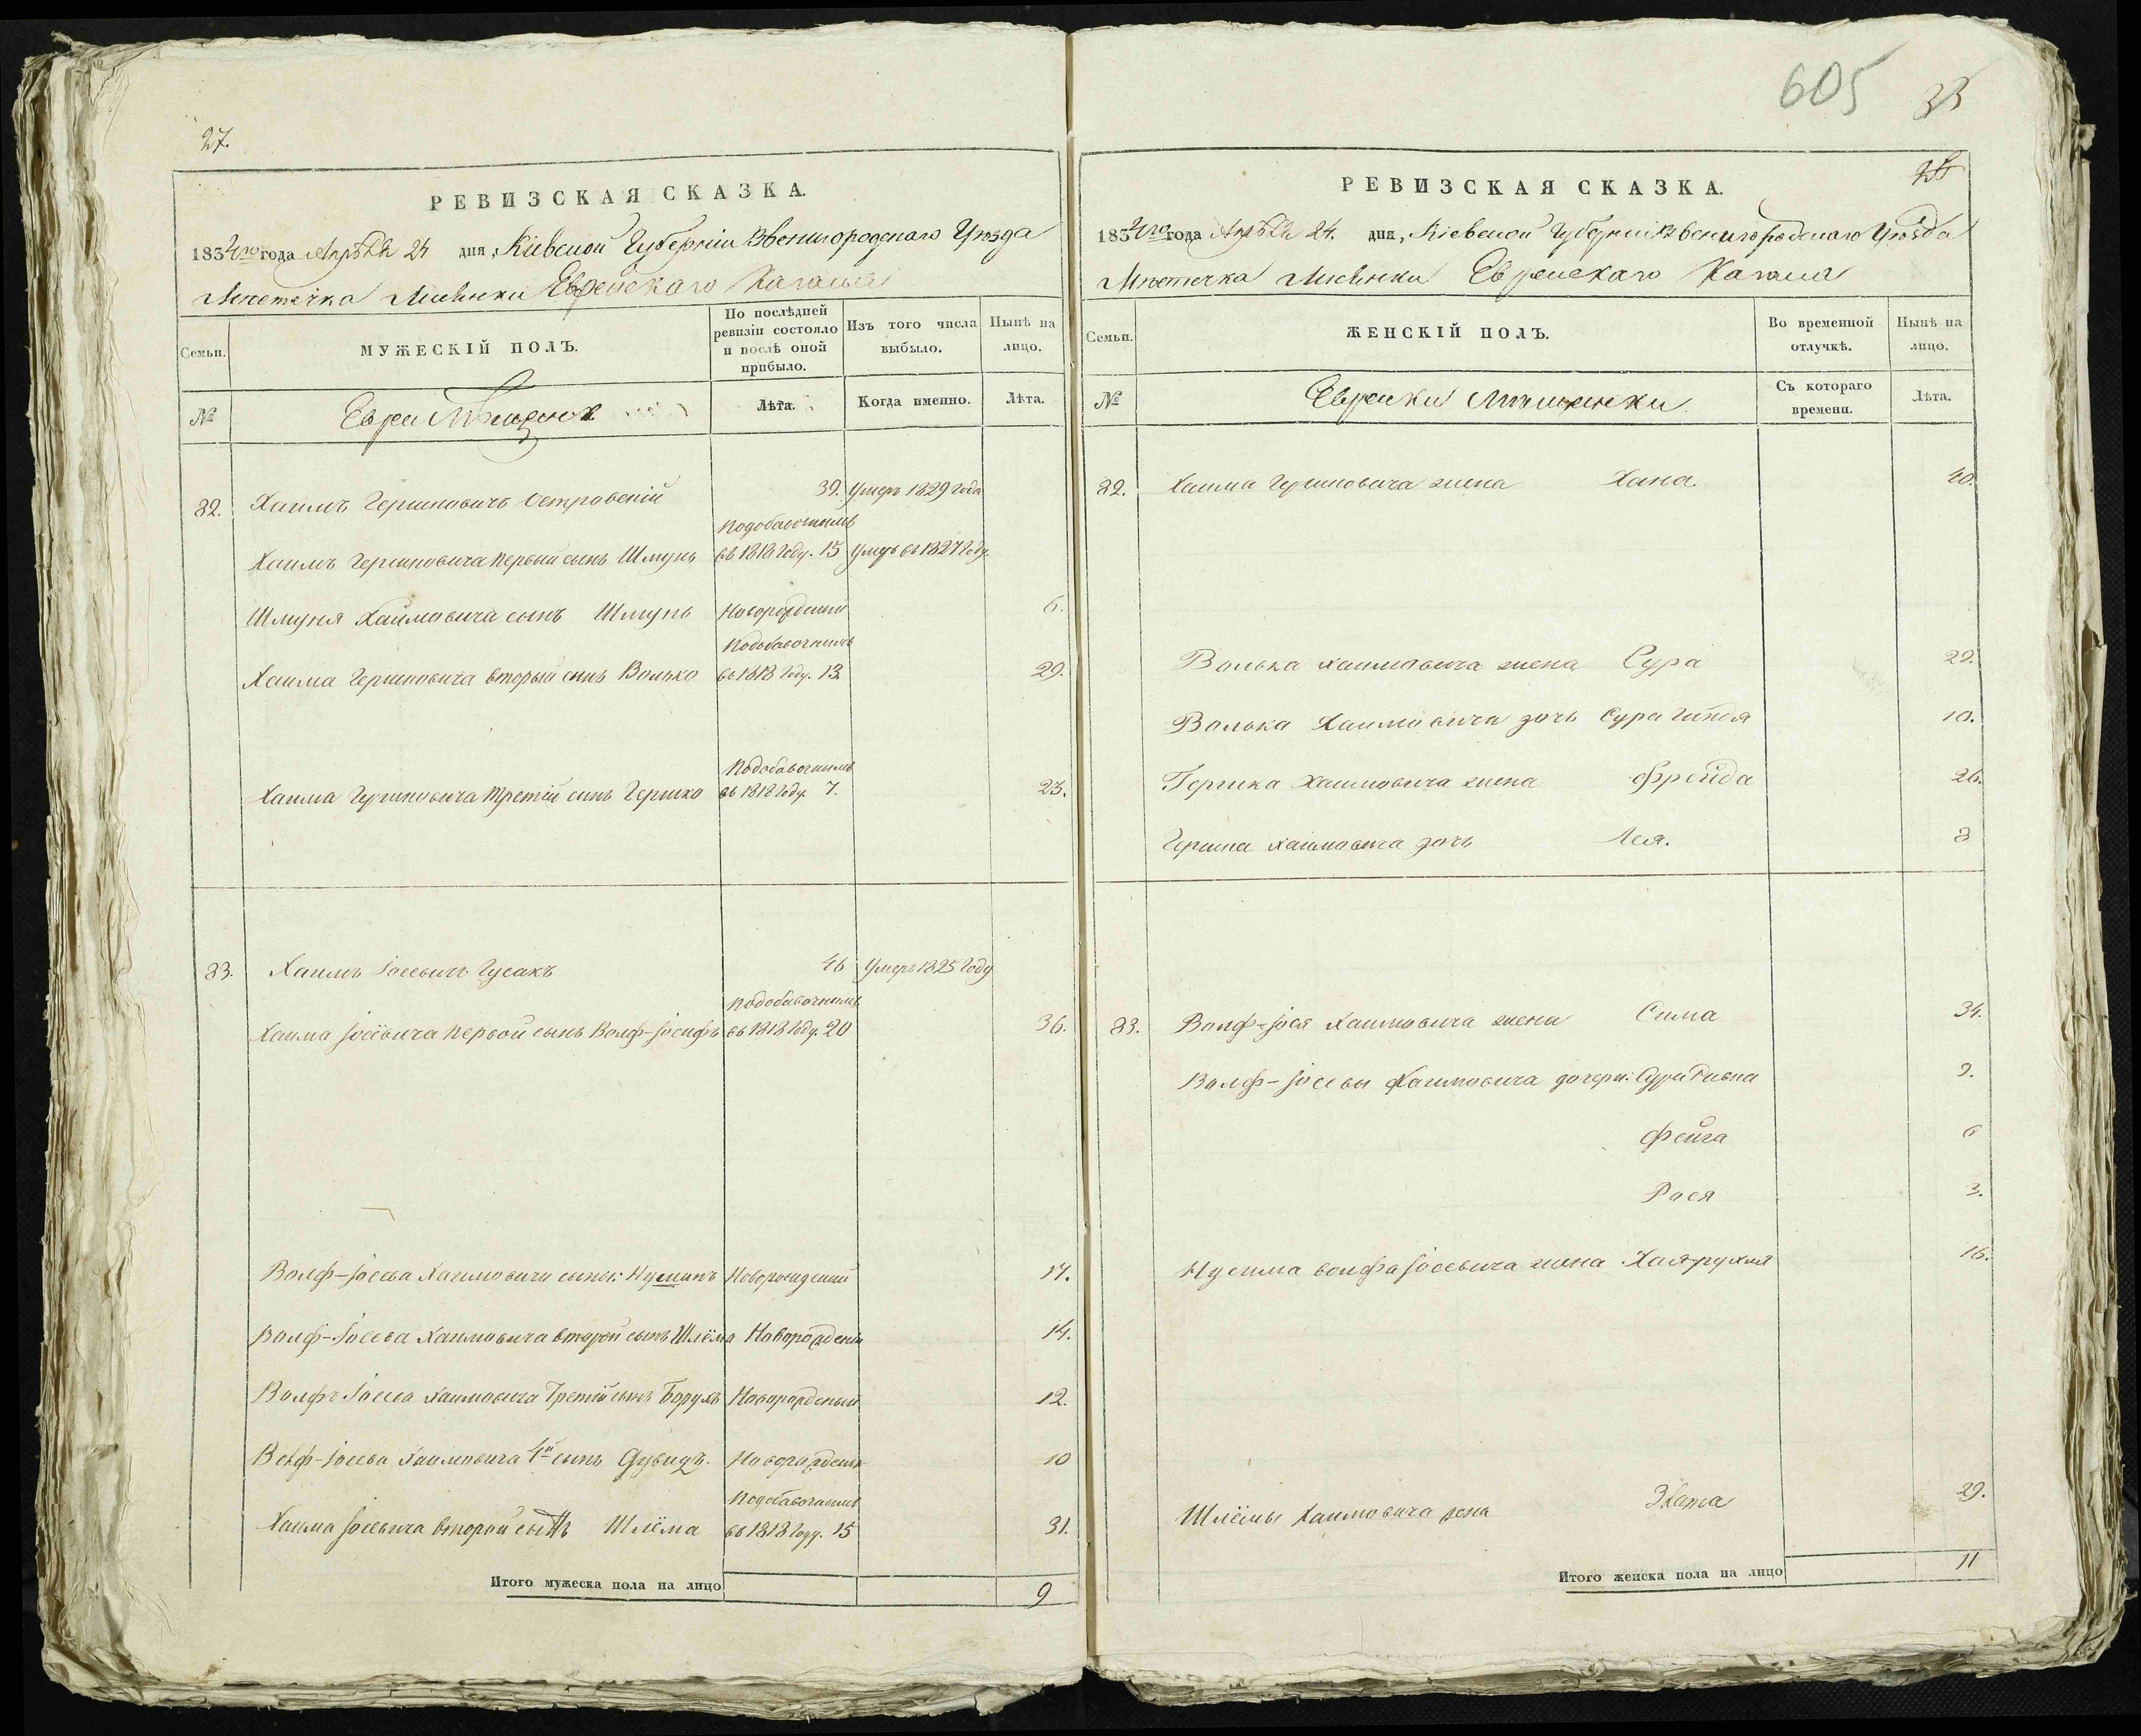 27.
РЕВИЗСКАЯ СКАЗКА.
1834го года Апрѣля 24 дня, Кіевской Губерніи Звенигородскаго Уѣзда
Мѣстечка Лисянки Еврейскаго Кагала
Семьи.
МУЖЕСКІЙ ПОЛЪ.
По послѣдней ревизіи состояло и послѣ оной прибыло.
Изъ того числа выбыло.
Нынѣ на лицо.
№
Евреи Мѣщане
Лѣта.
Когда именно.
Лѣта.
82. Хаимъ Гершковичъ Островскій 39. Умеръ 1829 года
Подобавочнимъ
Хаимъ Гершковича первый сынъ Шмунь въ 1818 году. 15 Умеръ въ 1827 году.
Шмуня Хаимовича сынъ Шмунь Новорожденній 6.
Подобавочнимъ
Хаима Гершковича вторый сынъ Волько въ 1818 году. 13. 29.
Подобавочнимъ
Хаима Гершковича третій сынъ Гершко въ 1818 году. 7. 23.
83. Хаимъ Іосевичъ Гусакъ 46 Умеръ 1825 году
Подобавочнимъ
Хаима Іосевича первой сынъ Волф-Іосифъ въ 1818 году. 20 36.
Волф-Іосева Хаимовича сыны: Нусимъ Новорожденній 17.
Волф-Іосева Хаимовича второй сынъ Шлёма Новорожденій 14.
Волфъ Іосева Хаимовича Третій сынъ Борухъ Новорожденый 12.
Волф-Іосева Хаимовича 4й сынъ Дувидъ. Новорожденій 10
Подобавочнимъ
Хаима Іосевича второй сынъ Шлёма въ 1818 году. 15 31.
Итого мужеска пола на лицо 9
605
РЕВИЗСКАЯ СКАЗКА.
1834го года Апрѣля 24. дня, Кіевской Губерніи Звенигородскаго Уѣзда
Мѣстечка Лисянки Еврейскаго Кагала
Семьи.
ЖЕНСКІЙ ПОЛЪ.
Во временной отлучкѣ.
Нынѣ на лицо.
№
Еврейки Мѣщанки.
Съ котораго времени.
Лѣта.
82. Хаима Гершковича жена Хана. 40.
Волька Хаимовича жена Сура 29.
Волька Хаимовича дочь Сура Гитля 10.
Гершка Хаимовича жена Фрейда 26.
Гершка Хаимовича дочь Лея. 8
83. Волф-Іося Хаимовича жена Сима 34.
Волф-Іосевы Хаимовича дочери: Сура Ривка 9.
Фейга 6
Рося 3.
Нусима волфа Іосевича жена Хая-рухля 16.
Шлёмы Хаимовича жена Злата 29.
Итого женска пола на лицо 11